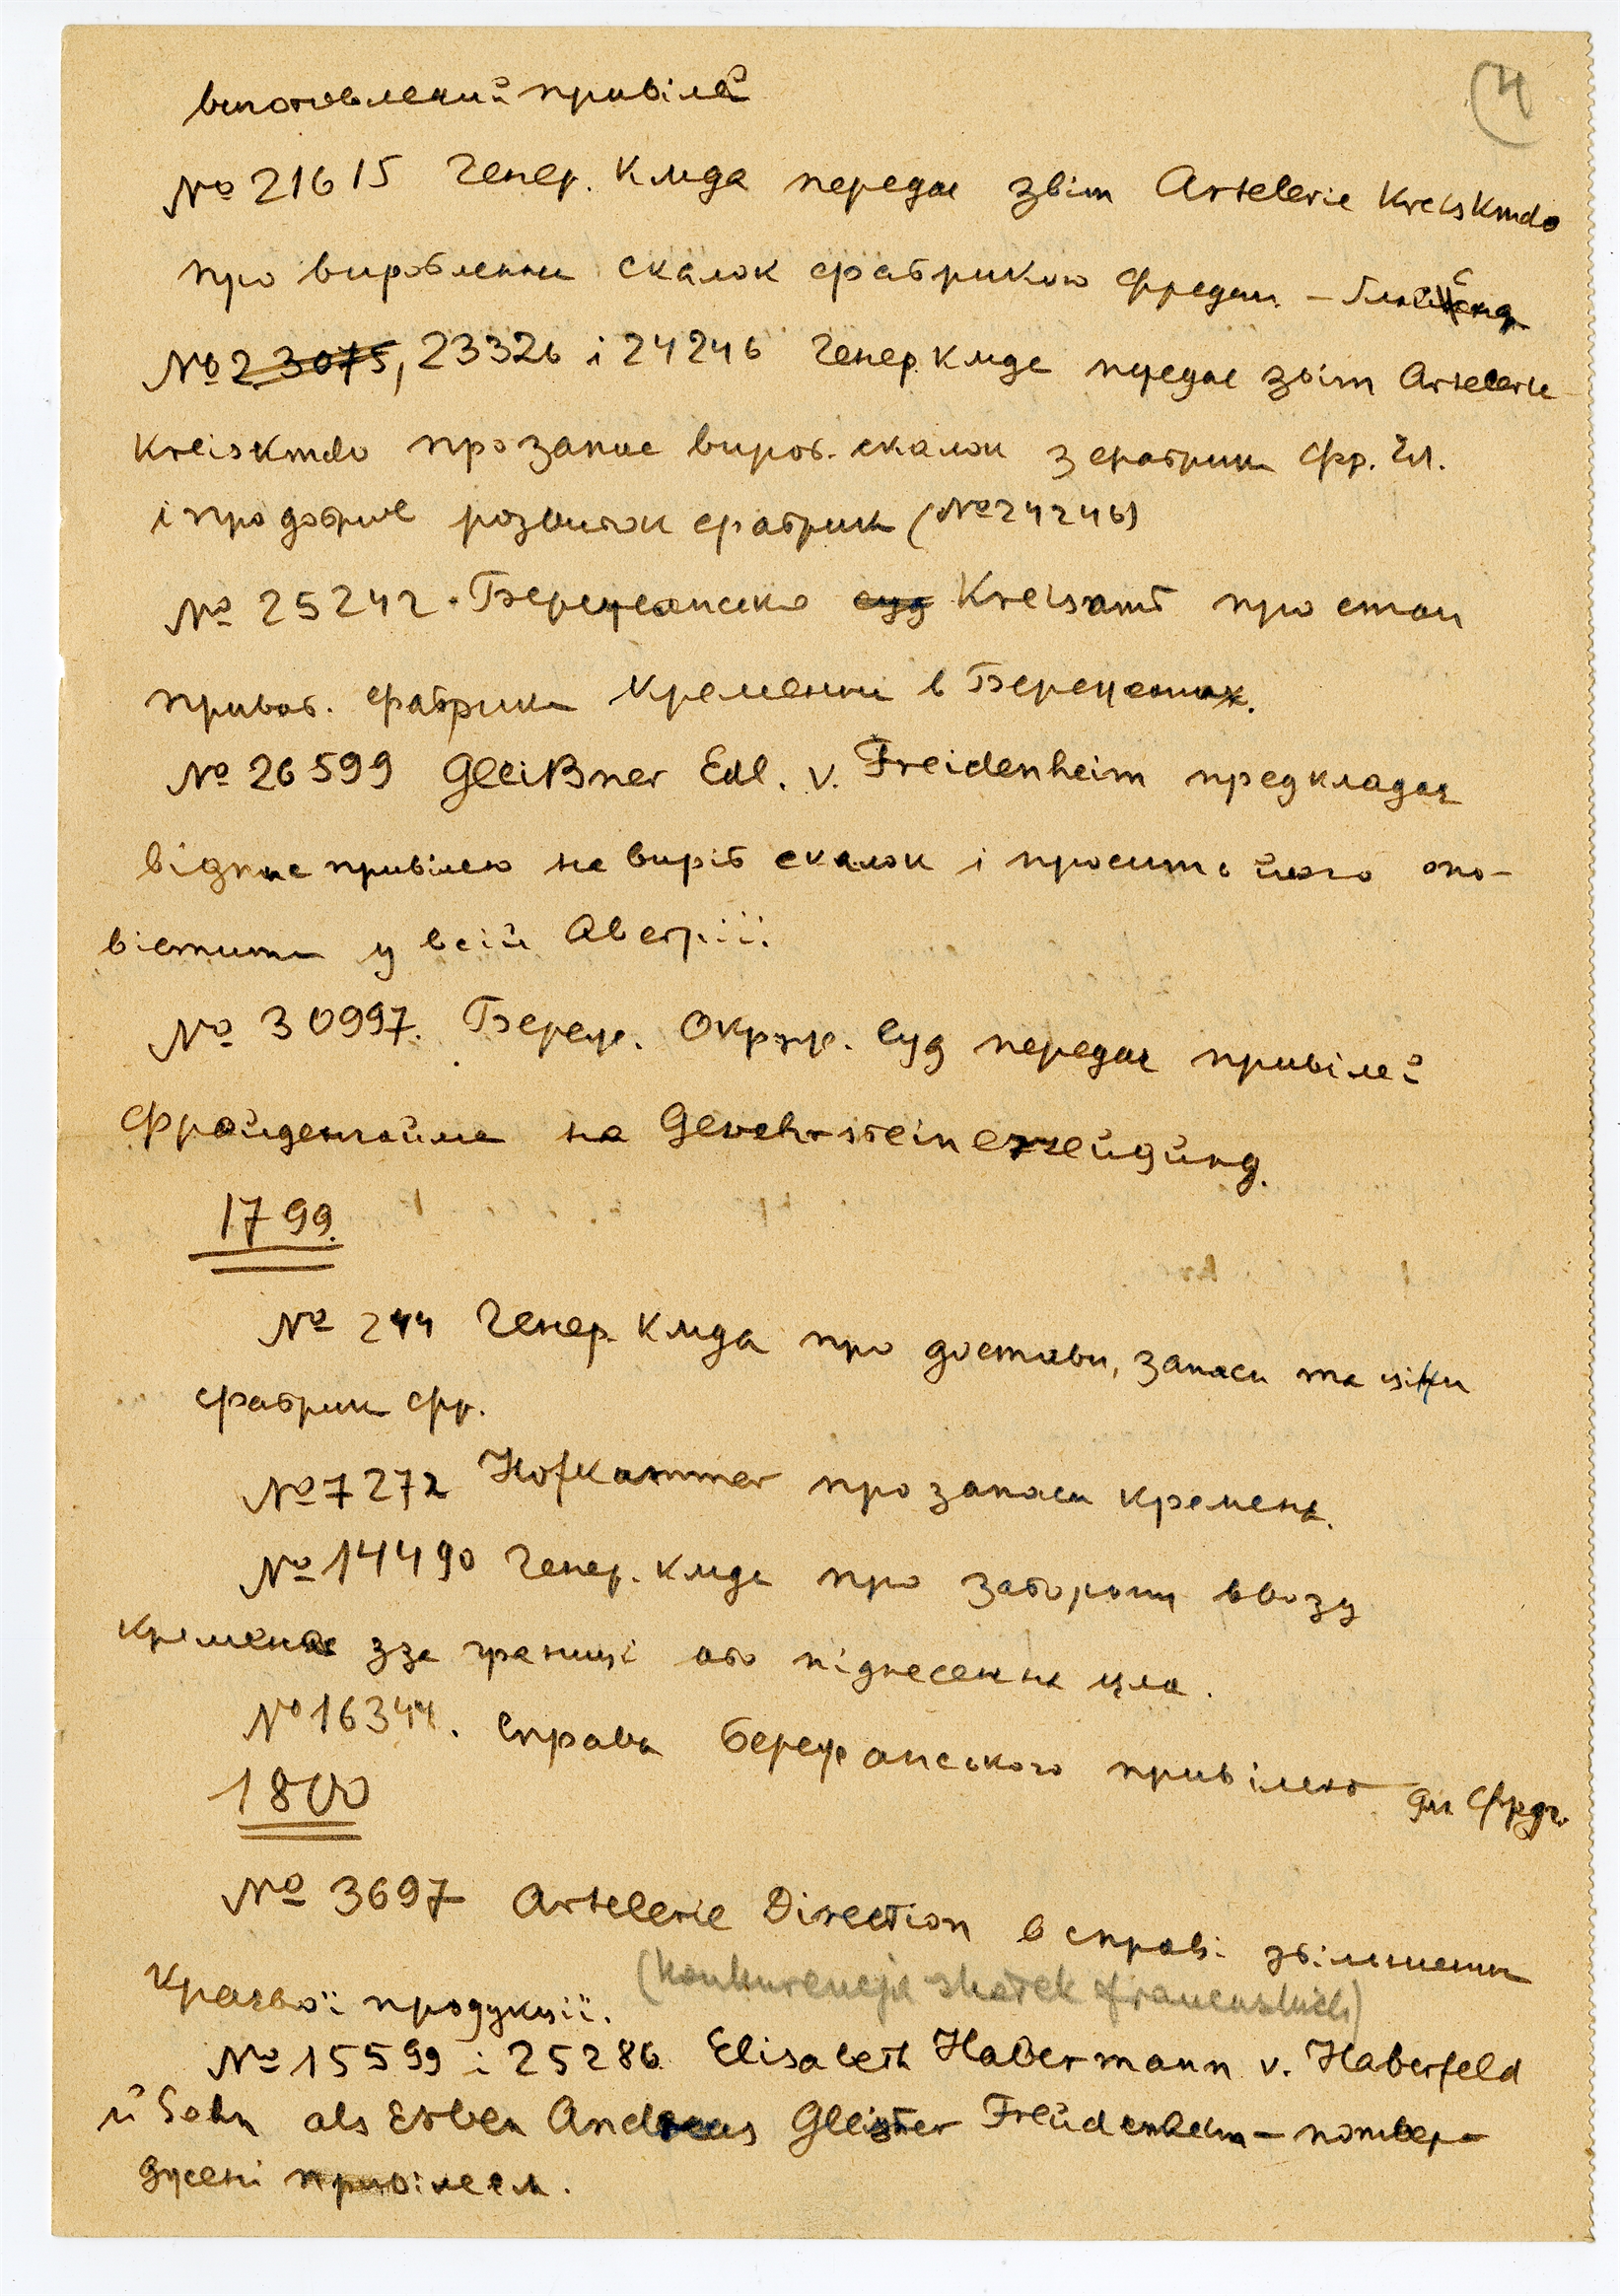 виготовлений привілей
4
№ 21615 Генер. Кмда передає звіт Artelerie Kreiskmdo
про вироблення скалок фабрикою Фредан –
№ 23075, 23326 і 24246 Генер Кмда передає звіт Artelerie
Kreiskmdo про запас вироб. скалок з фабрики Фр. Гл.
і про добрий розвиток фабрики (№ 24246)
№ 25242. Бережанське суд Kreisamt про стан
приват. фабрики кременю в Бережанах.
№ 26599 Gleißner Edl. v. Freidenheim предкладає
відпис привілею на виріб скалок і просить його опо-
вістити у всій Австрії.
№ 30997. Береж. Окруж. Суд передає привілей
Фрайденгайма на Gewehrsteinerzeugung.
1799.
№ 244 Генер. Кмда про достави, запаси та ціни
фабрики Фр.
№ 7272 Hofkammer про запаси кременя.
№ 14490 Генер. Кмда про заборону ввозу
кременя зза границі або піднесення цла.
№ 16344. Справа бережанського привілею для Фрдг.
1800
№ 3697 Artelerie Direction в справі збільшення
краєвої продукції. (konkurencja skałek francuskich)
№ 15599 і 25286 Elisabeth Habermann v. Haberfeld
ŭ Sohn als Erben Andreas Gleisner Freŭdenheim – потвер-
джені привілеєм.